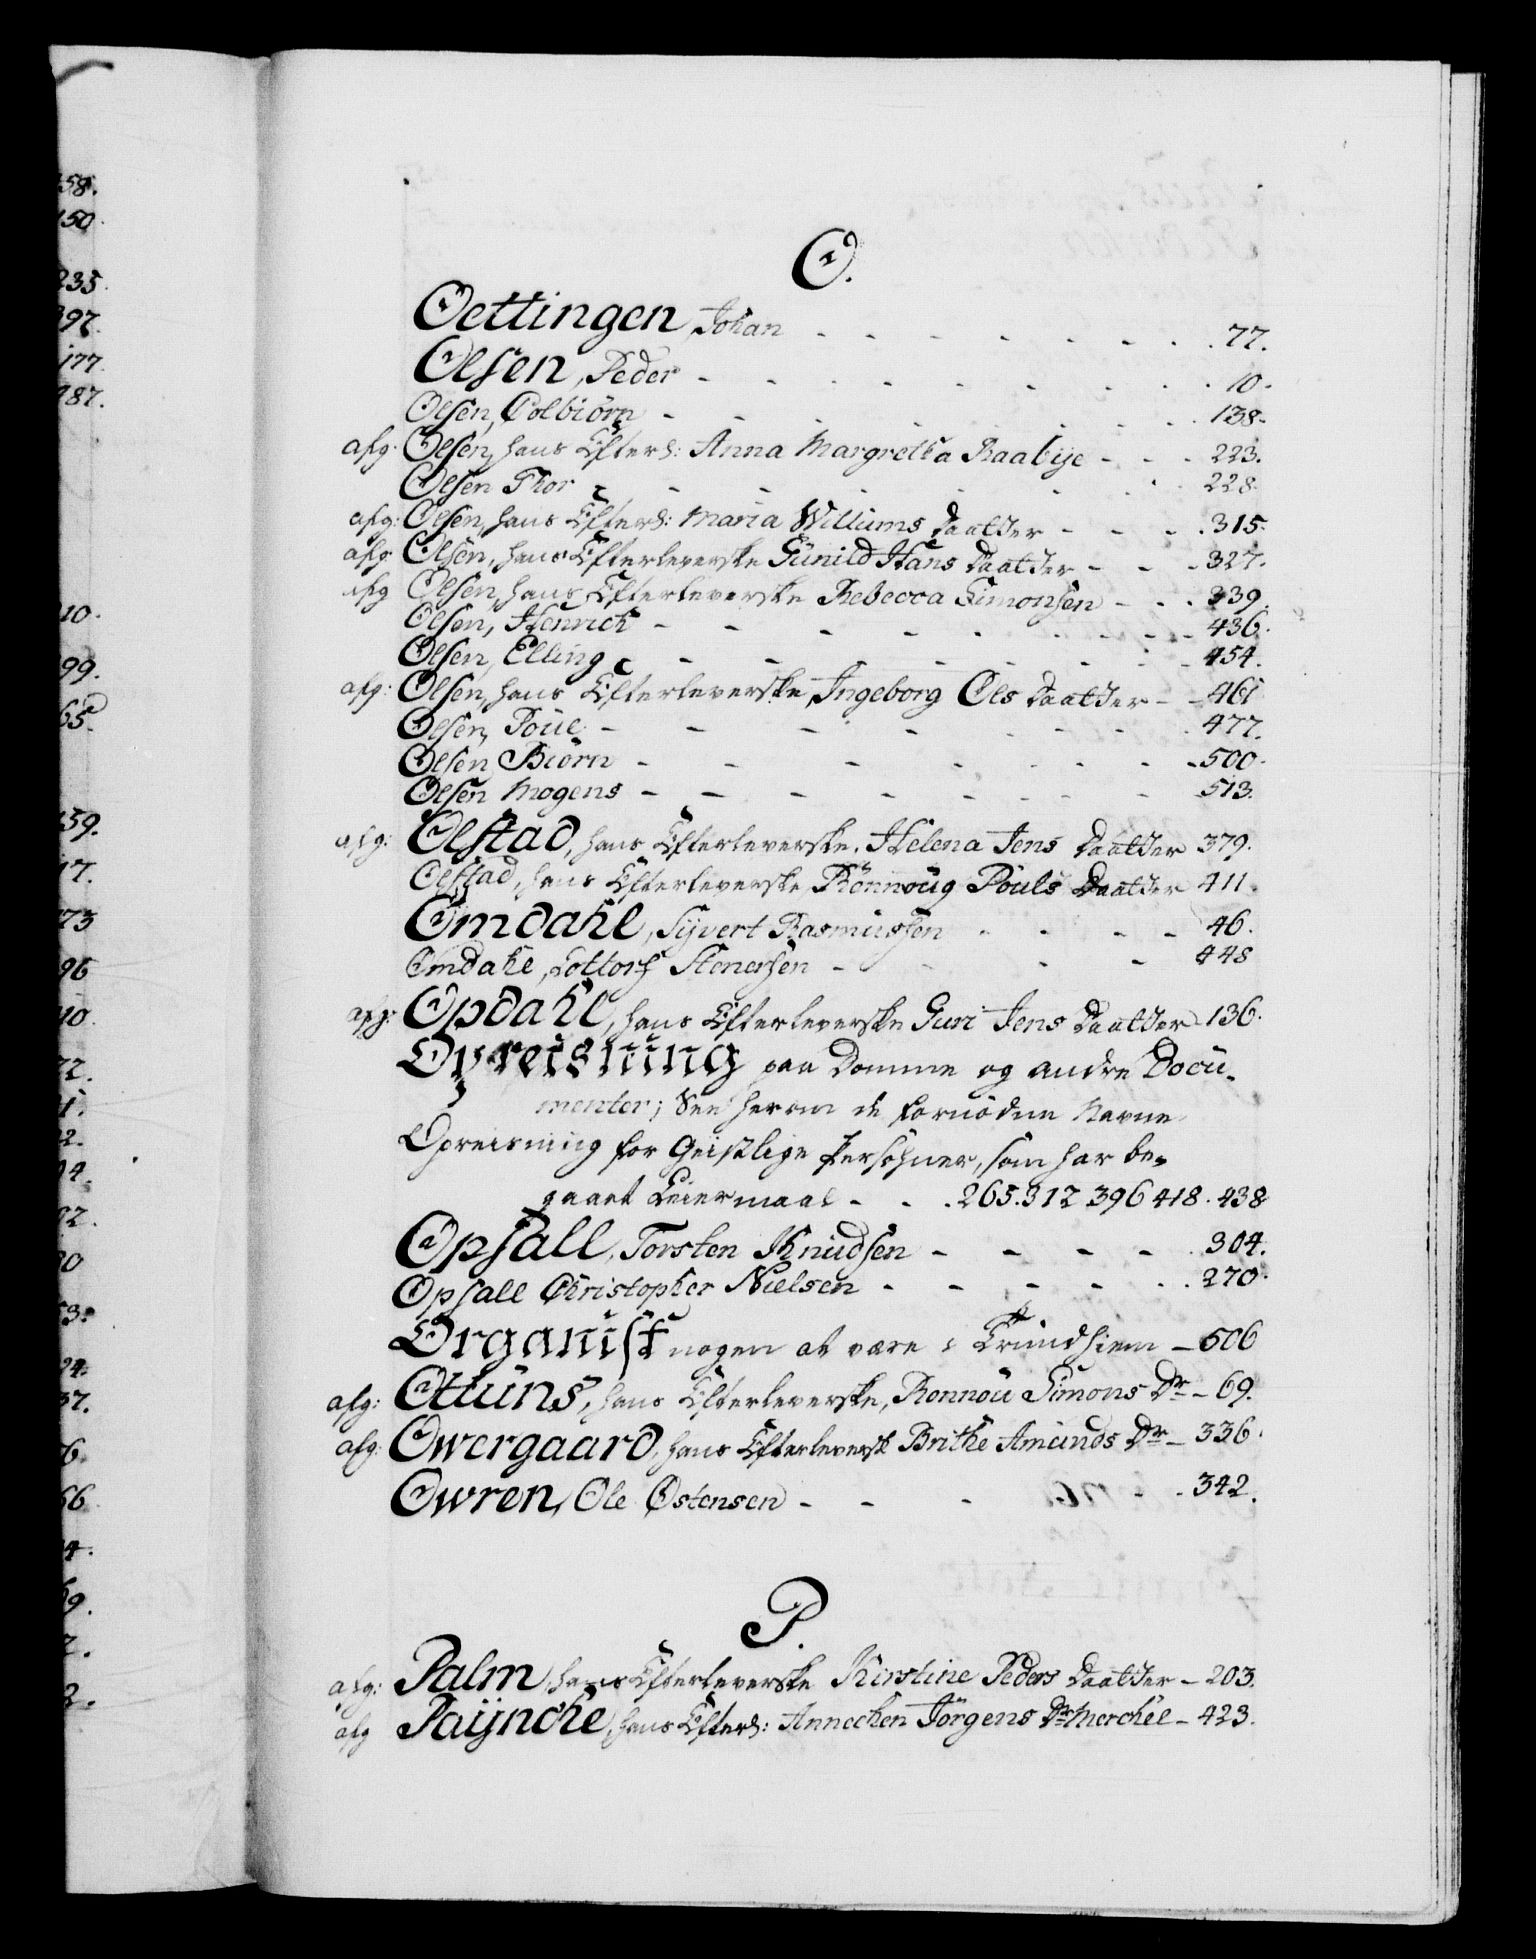 O.
Oettingen, Johan - - - - - - - 77.
Olsen, Peder - - - - - - - 10.
Olsen, Colbiörn - - - - - - 138.
afg: Olsen, hans Efterl: Anna Margretha Raabije - - - 223.
Olsen Thor - - - - - - 228.
afg: Olsen, hans Efterl: Maria Willums Daatter - - - 315.
afg Olsen, hans Efterleverske Gunild Hans Daatter - - - 327.
afg Olsen, hans Efterleverske Rebecca Simonsen - - - 339.
Olsen, Henrich - - - - - - - 436.
Olsen, Elling - - - - - - - 454.
afg: Olsen, hans Efterleverske, Ingeborg Ols Daatter - - 461
Olsen, Poul - - - - - - - 477.
Olsen Biörn - - - - - - - 500.
Olsen Mogens - - - - - - - 513.
afg: Olstad, hans Efterleverske, Helena Jens Daatter 379.
Olstad, hans Efterleverske Rönnoug Pouls Daatter 411.
Omdahl, Sijvert Rasmussen - - - - 46.
Omdahl, Stenersen - - - - 448
afg: Opdahl, hans Efterleverske Guri Jens Daatter - 136.
Opreisning paa Domme og andre Docu-
menter; See herom de fornödne Navne
Opreisning for Geistlige Persohner, som har be-
gaaet Leiermaal - - - 265. 312 396 418. 438
Opsall, Torsten Knudsen - - - - - 304.
Opsall Christopher Nielsen - - - - - - 270.
Organist nogen at være i Trundhiem - 506
afg: Otuns, hans Efterleverske, Ronnou Simons Dr - 69.
afg. Owergaard, hans Efterleversk Brithe Amunds Dr - 336.
Owren, Ole Østensen - - - - - 342.
P.
afg: Palm, hans Efterleverske Kirstine Peders Daatter - 203.
afg Paijncke, hans Efterl: Annechen Jörgens Dr Merchel - 423.
58.
150.
235.
197.
177.
187.
10.
99.
65.
59.
17.
73
96
10.
72.
1.
2.
04.
02.
0
3.
24.
37.
6.
66
4.
9.
2.
2.